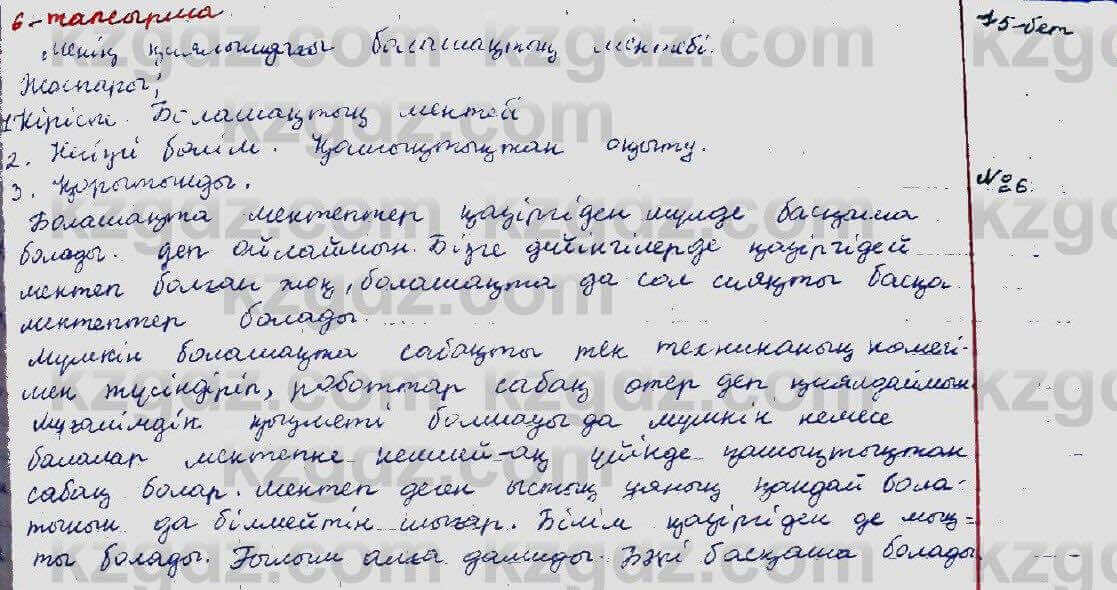 6-тапсырма
15-бет
Менің қиялымдағы болашақтың мектебі.
Жоспары:
1 Кіріспе. Болашақтың мектебі
2. Негізгі бөлім. Қашықтықтан оқыту.
3. Қорытынды.
№6.
Болашақта мектептер қазіргіден мүлде басқаша
болады. деп ойлаймын. Бізге дейінгілерде қазіргідей
мектеп болған жоқ, болашақта да сол сияқты басқа
мектептер болады.
Мүмкін болашақта сабақты тек техниканың көмегі-
мен түсіндіріп, роботтар сабақ өтер деп қиялдаймын.
Мұғалімдік қызметі болмауы да мүмкін немесе
балалар мектепке келмей-ақ үйінде қашықтықтан
сабақ болар. Мектеп деген ыстық ұяның қандай бола-
тынын да білмейтін шығар. Білім қазіргіден де мық-
ты болады. Ғылым алға дамиды. Бәрі басқаша болады
kzgdz.com